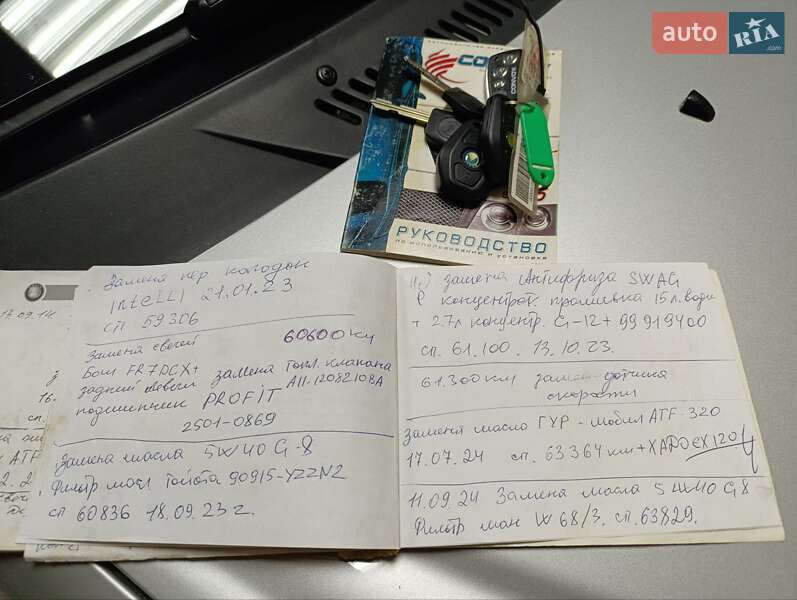 auto RIA .com
CONVOY
РУКОВОДСТВО
по использованию и установке
17.09.14
16.
сп.
ATF
Замена пер колодок
intelli 21.01.23
сп 59306
60600 км
Замена свечей
Бош FR7DCX+
задний левый замена топл. клапана
A11-1208210BA
подшипник PROFIT
2501-0869
Замена масла 5W40 G-8
Фильтр масл Тойота 90915-YZZN2
сп 60836 18.09.23 г.
замена Антифриза SWAG
концентрот. промывка 15 л. воды
+ 2.7 л концентр. G-12+ 99919400
сп. 61.100. 13.10.23.
61.300 км замена датчика
скорости
Замена масло ГУР - мобил ATF-320
17.07.24 сп. 63364 км + XADO EX120
11.09.24 Замена масла 5W40 G8
Фильтр ман W68/3. сп. 63829.